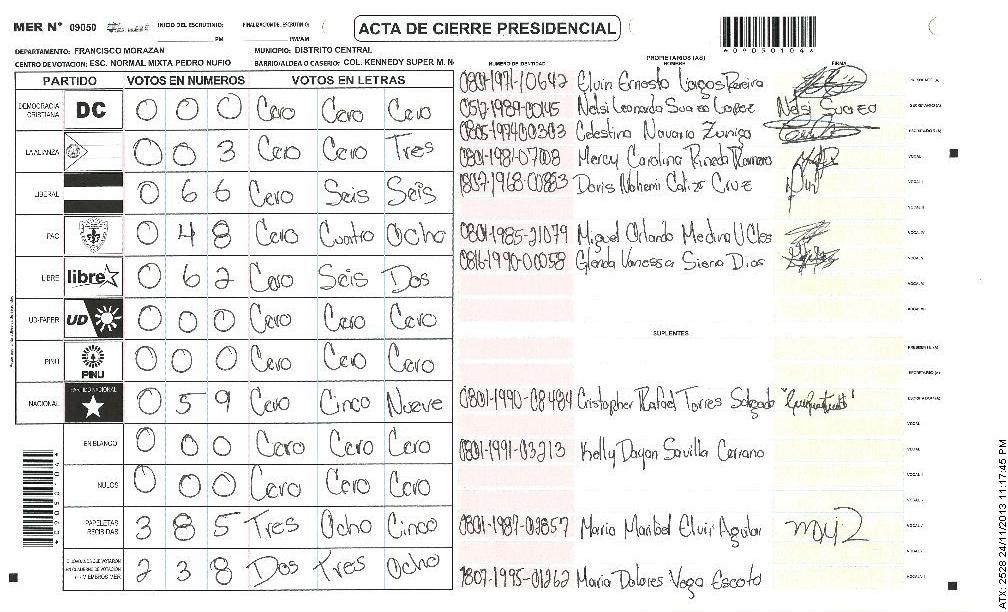 MER N° 09050 INICIO DEL ESCRUTINIO: PM FINALIZACION DEL ESCRUTINIO: PM/AM
ACTA DE CIERRE PRESIDENCIAL
09050104
DEPARTAMENTO: FRANCISCO MORAZAN MUNICIPIO: DISTRITO CENTRAL
CENTRO DE VOTACION: ESC. NORMAL MIXTA PEDRO NUFIO BARRIO/ALDEA O CASERIO: COL. KENNEDY SUPER M. N
PARTIDO VOTOS EN NUMEROS VOTOS EN LETRAS
DEMOCRACIA CRISTIANA DC 0 0 0 Cero Cero Cero
LA ALIANZA 0 0 3 Cero Cero Tres
LIBERAL 0 6 6 Cero Seis Seis
PAC 0 4 8 Cero Cuatro Ocho
LIBRE libre 0 6 2 Cero Seis Dos
UD-FAPER UD 0 0 0 Cero Cero Cero
PINU PINU 0 0 0 Cero Cero Cero
NACIONAL PARTIDO NACIONAL 0 5 9 Cero Cinco Nueve
EN BLANCO 0 0 0 Cero Cero Cero
NULOS 0 0 0 Cero Cero Cero
PAPELETAS RECIBIDAS 3 8 5 Tres Ocho Cinco
CIUDADANOS QUE VOTARON EN CUADERNO DE VOTACION MIEMBROS MER 2 3 8 Dos Tres Ocho
PROPIETARIOS (AS)
NUMERO DE IDENTIDAD NOMBRE FIRMA
0801-1971-10642 Elvin Ernesto Vargas Pereira
Nelsi Leonardo Suazo Lopez Nelsi Suazo SECRETARIO (A)
0805-1974-00303 Celestina Navarro Zuniga ESCRUTADOR (A)
0801-1981-07008 Mercy Carolina Pineda Romero VOCAL
1807-1968-00853 Doris Nohemi Calizo Cruz VOCAL
0801-1985-21079 Miguel Orlando Medina VOCAL
0816-1990-00058 Glenda Vanessa Sierra Dias VOCAL
SUPLENTES
PRESIDENTE (A)
SECRETARIO (A)
0801-1990-08484 Cristopher Rafael Torres Salgado ESCRUTADOR (A)
0801-1991-03213 Kelly Dayan Savilla Cerrano VOCAL
0801-1987-03857 Maria Maribel Elvir Aguilar VOCAL
1807-1995-01262 Maria Dolores Vega Escoto VOCAL
ATX 2528 24/11/2013 11:17:45 PM